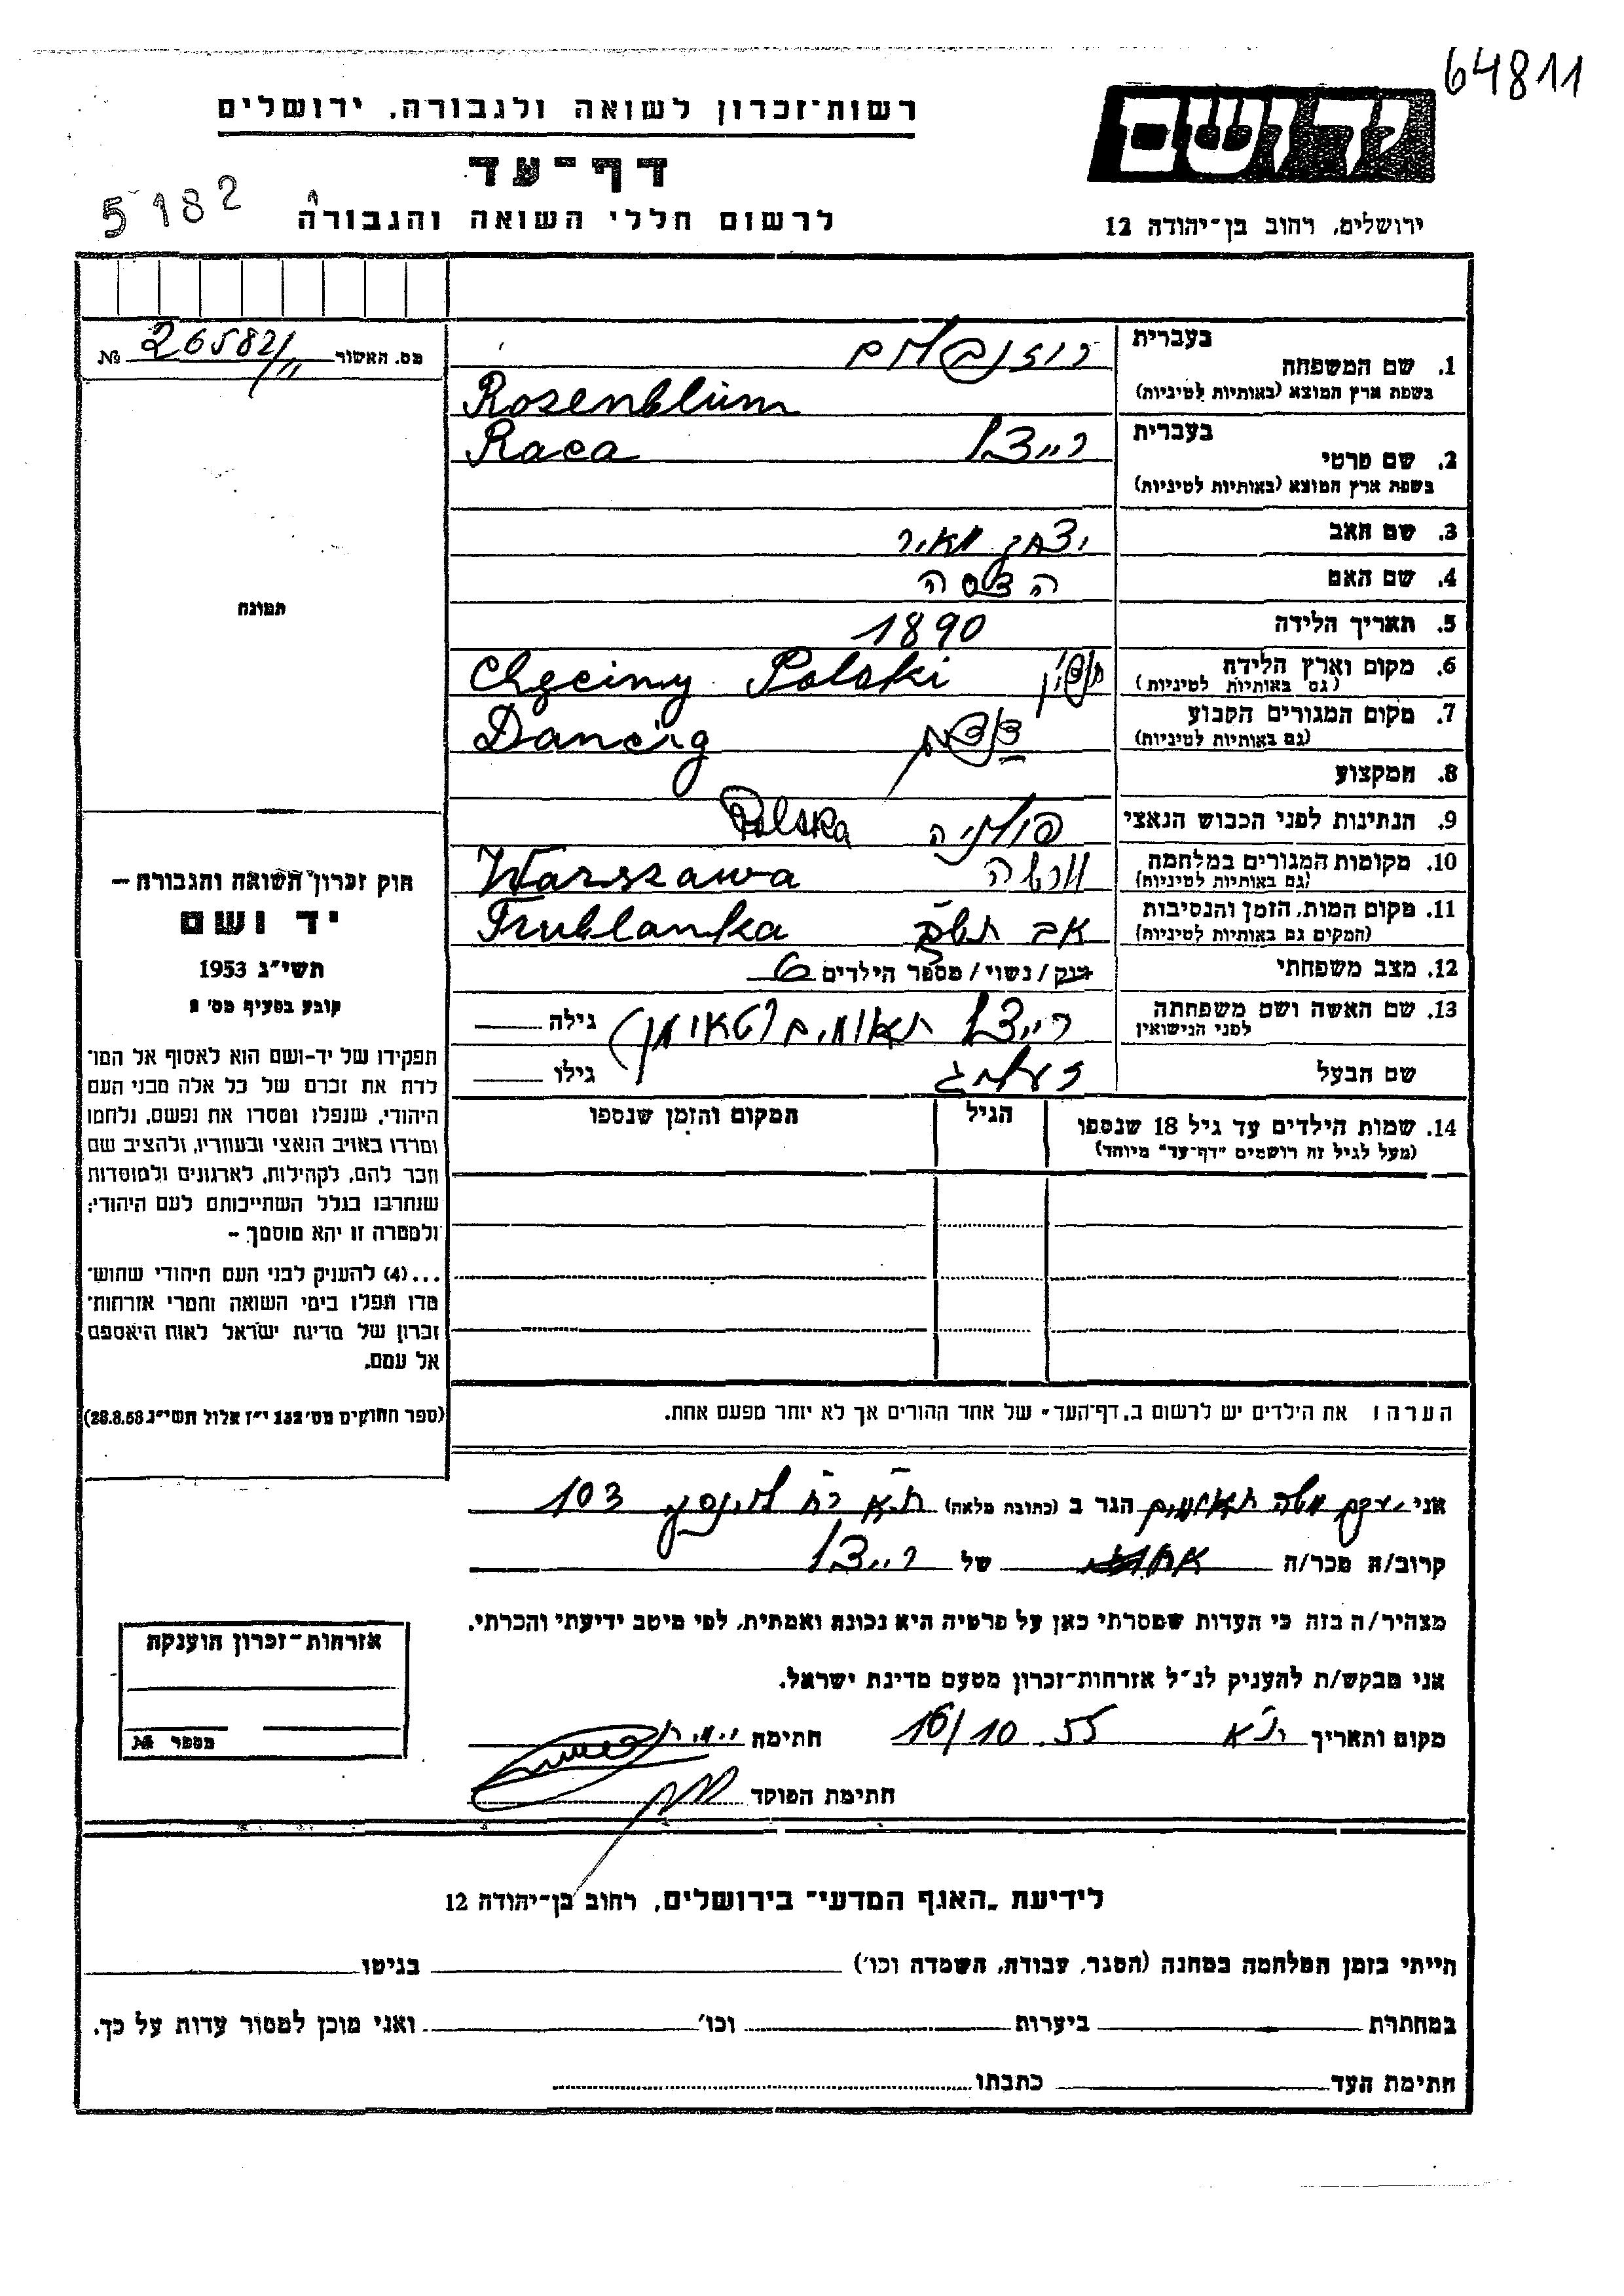 64811
רשות־זכרון לשואה ולגבורה, ירושלים
יד ושם
דף־עד
5182
לרשום חללי השואה והגבורה
ירושלים, רחוב בן־יהודה 12
מס. האשור 26582/11 №
בעברית
1. שם המשפחה רוזנבלום
בשפת ארץ המוצא (באותיות לטיניות) Rosenblum
בעברית
2. שם פרטי רייצל Raca
בשפת ארץ המוצא (באותיות לטיניות)
3. שם האב יצחק מאיר
4. שם האם הדסה
5. תאריך הלידה 1890
6. מקום וארץ הלידה Chęciny Polski
(גם באותיות לטיניות)
7. מקום המגורים הקבוע דנציג Dancig
(גם באותיות לטיניות)
8. המקצוע
9. הנתינות לפני הכבוש הנאצי פולניה Polska
10. מקומות המגורים במלחמה וורשה Warszawa
(גם באותיות לטיניות)
11. מקום המות, הזמן והנסיבות אב תש"ב Trublanka
(המקום גם באותיות לטיניות)
12. מצב משפחתי רנק / נשוי / מספר הילדים 6
13. שם האשה ושם משפחתה רייצל תאומים (טאומן) גילה
לפני הנישואין
שם הבעל זעליג גילו
14. שמות הילדים עד גיל 18 שנספו הגיל המקום והזמן שנספו
(מעל לגיל זה רושמים "דף־עד" מיוחד)
הערה: את הילדים יש לרשום ב"דף־העד" של אחד ההורים אך לא יותר מפעם אחת.
תמונה
חוק זכרון השואה והגבורה –
יד ושם
תשי"ג 1953
קובע בסעיף מס' 2
תפקידו של יד-ושם הוא לאסוף אל המו־
לדת את זכרם של כל אלה מבני העם
היהודי, שנפלו ומסרו את נפשם, נלחמו
ומרדו באויב הנאצי ובעוזריו, ולהציב שם
וזכר להם, לקהילות, לארגונים ולמוסדות
שנחרבו בגלל השתייכותם לעם היהודי;
ולמטרה זו יהא מוסמך –
...(4) להעניק לבני העם היהודי שהוש־
מדו ונפלו בימי השואה והמרי אזרחות־
זכרון של מדינת ישראל לאות היאספם
אל עמם.
(ספר החוקים מס' 132 י"ז אלול תשי"ג 28.8.53)
אני יעקב משה תאומים הגר ב (כתובת מלאה) ת"א רח' לוינסקי 103
קרוב/ה מכר/ה של רייצל
מצהיר/ה בזה כי העדות שמסרתי כאן על פרטיה היא נכונה ואמתית, לפי מיטב ידיעתי והכרתי.
אני מבקש/ת להעניק לנ"ל אזרחות־זכרון מטעם מדינת ישראל.
מקום ותאריך ת"א 16/10.55 חתימה
חתימת הפוקד
אזרחות־זכרון הוענקה
מספר №
לידיעת "האגף המדעי" בירושלים, רחוב בן־יהודה 12
הייתי בזמן המלחמה במחנה (הסגר, עבודה, השמדה וכו') בגיטו
במחתרת ביערות וכו' ואני מוכן למסור עדות על כך.
חתימת העד כתבתו